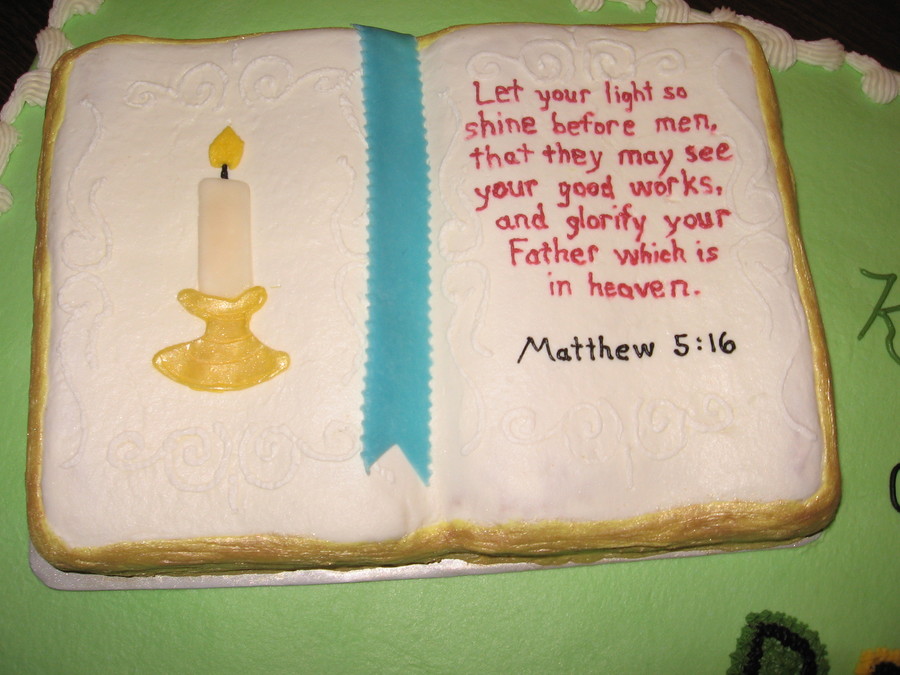 Let your light so
shine before men,
that they may see
your good works,
and glorify your
Father which is
in heaven.
Matthew 5:16